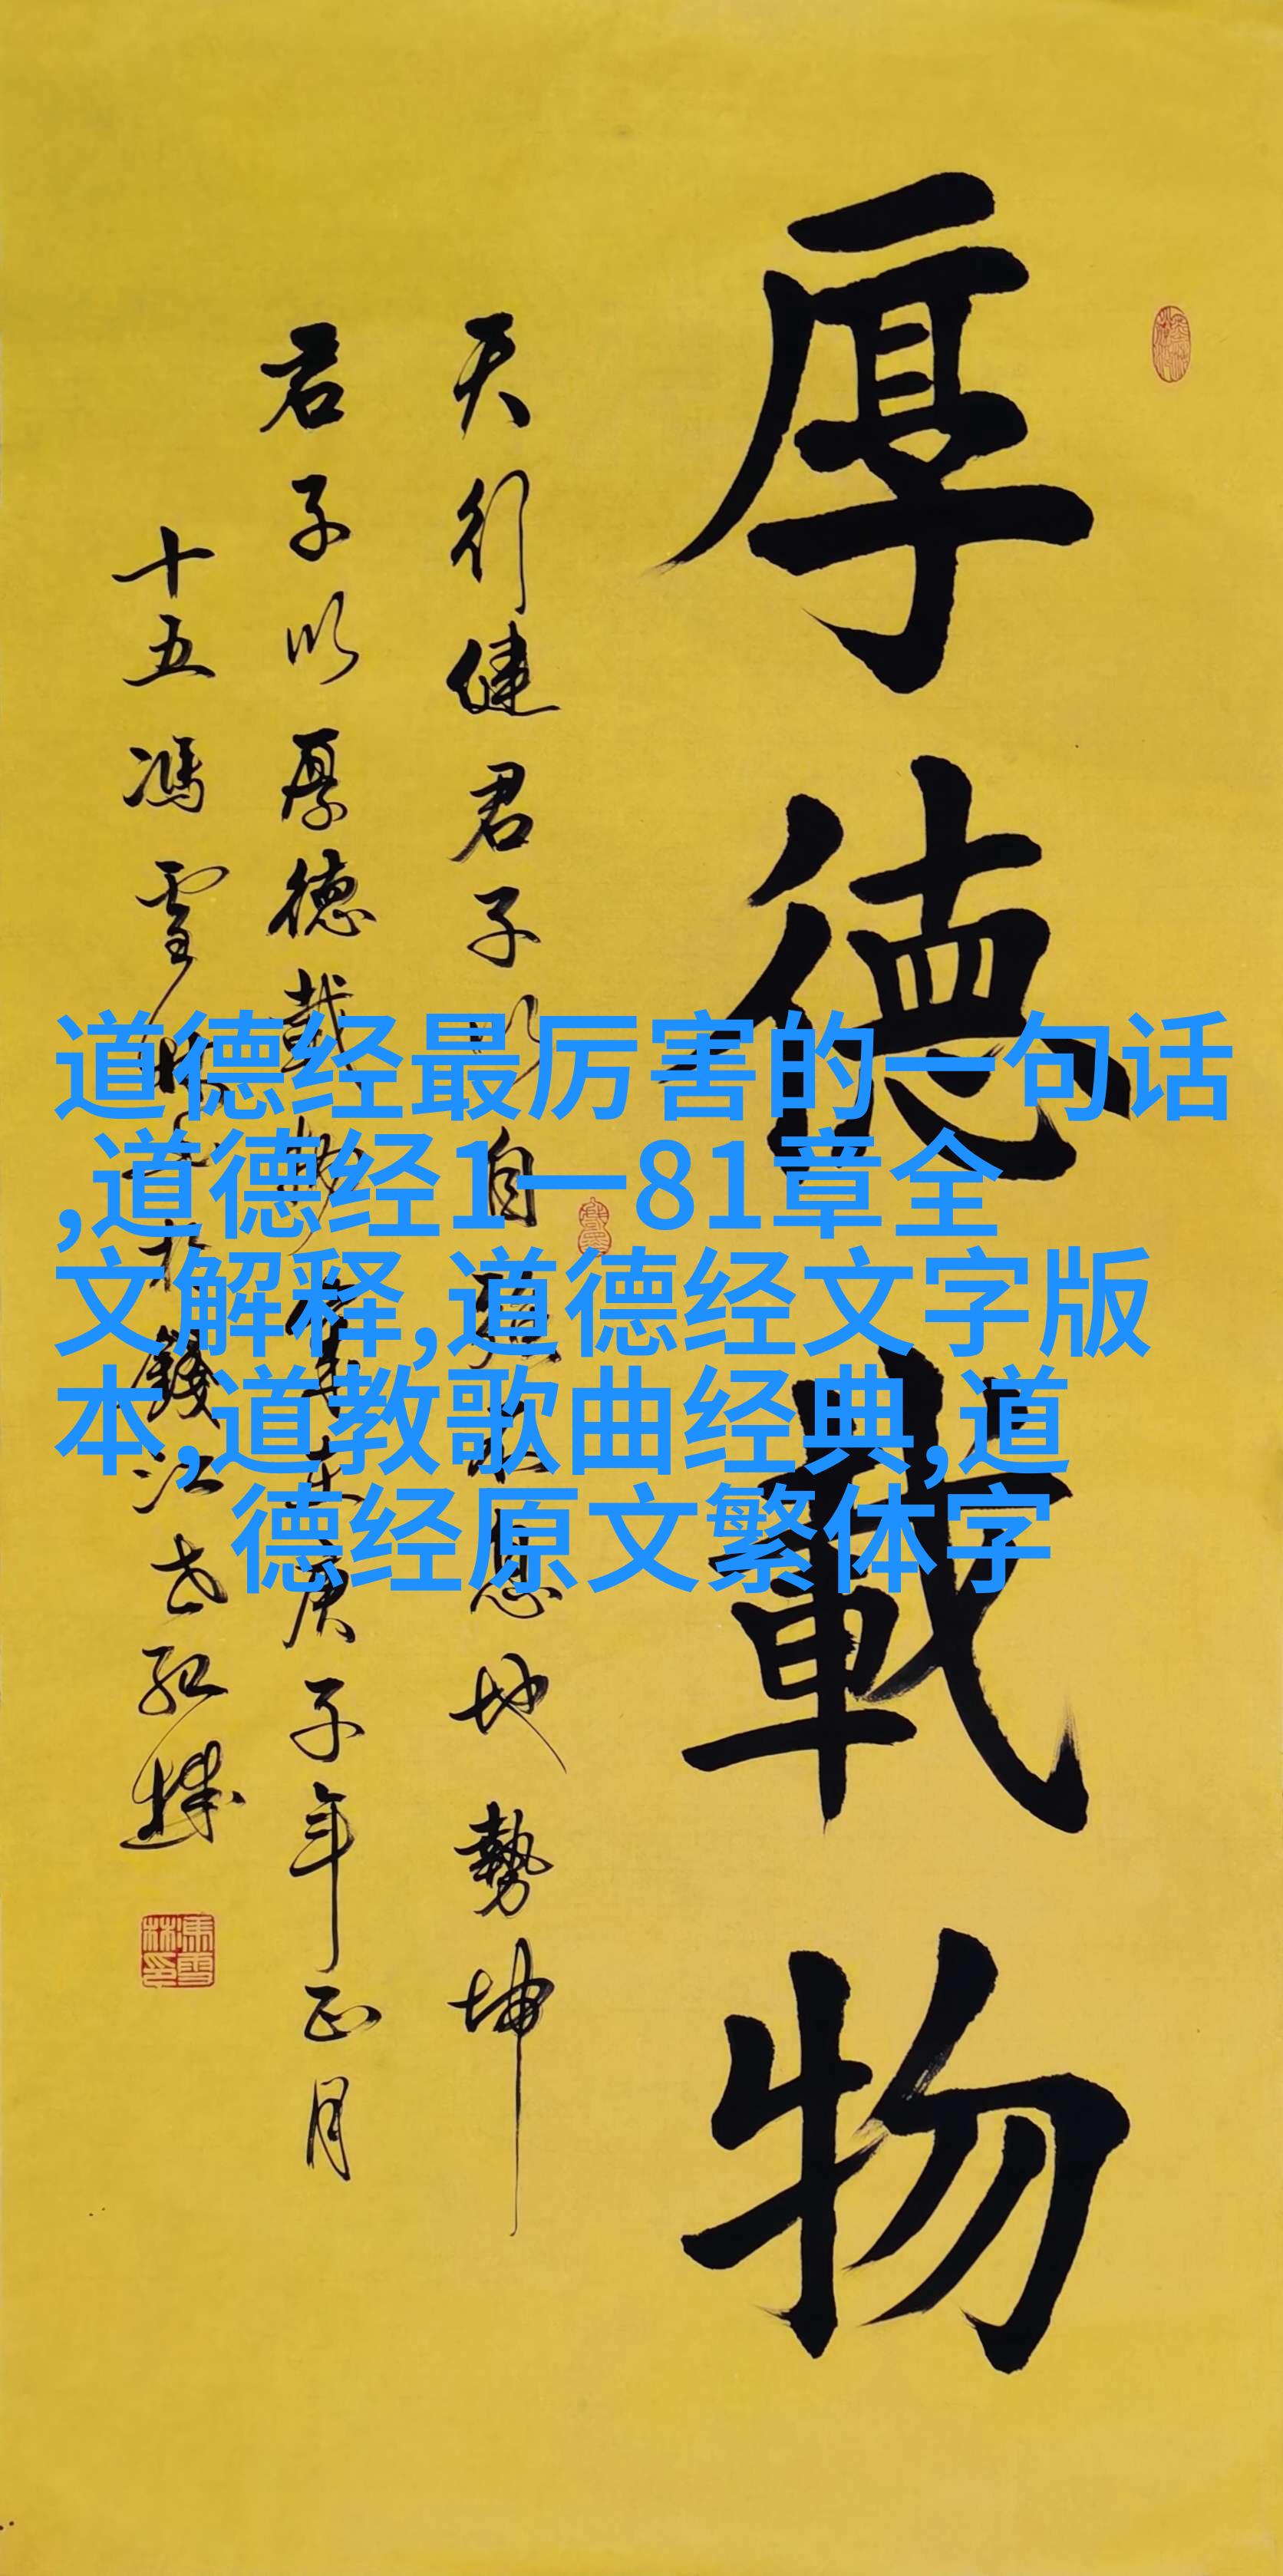 厚德載物
天行健君子以自強不息地勢坤
君子以厚德載物 歲在庚子年正月
十五馮雪林書於錢江世紀城
馮雪林印
道德经最厉害的一句话
,道德经1一81章全
文解释,道德经文字版
本,道教歌曲经典,道
德经原文繁体字